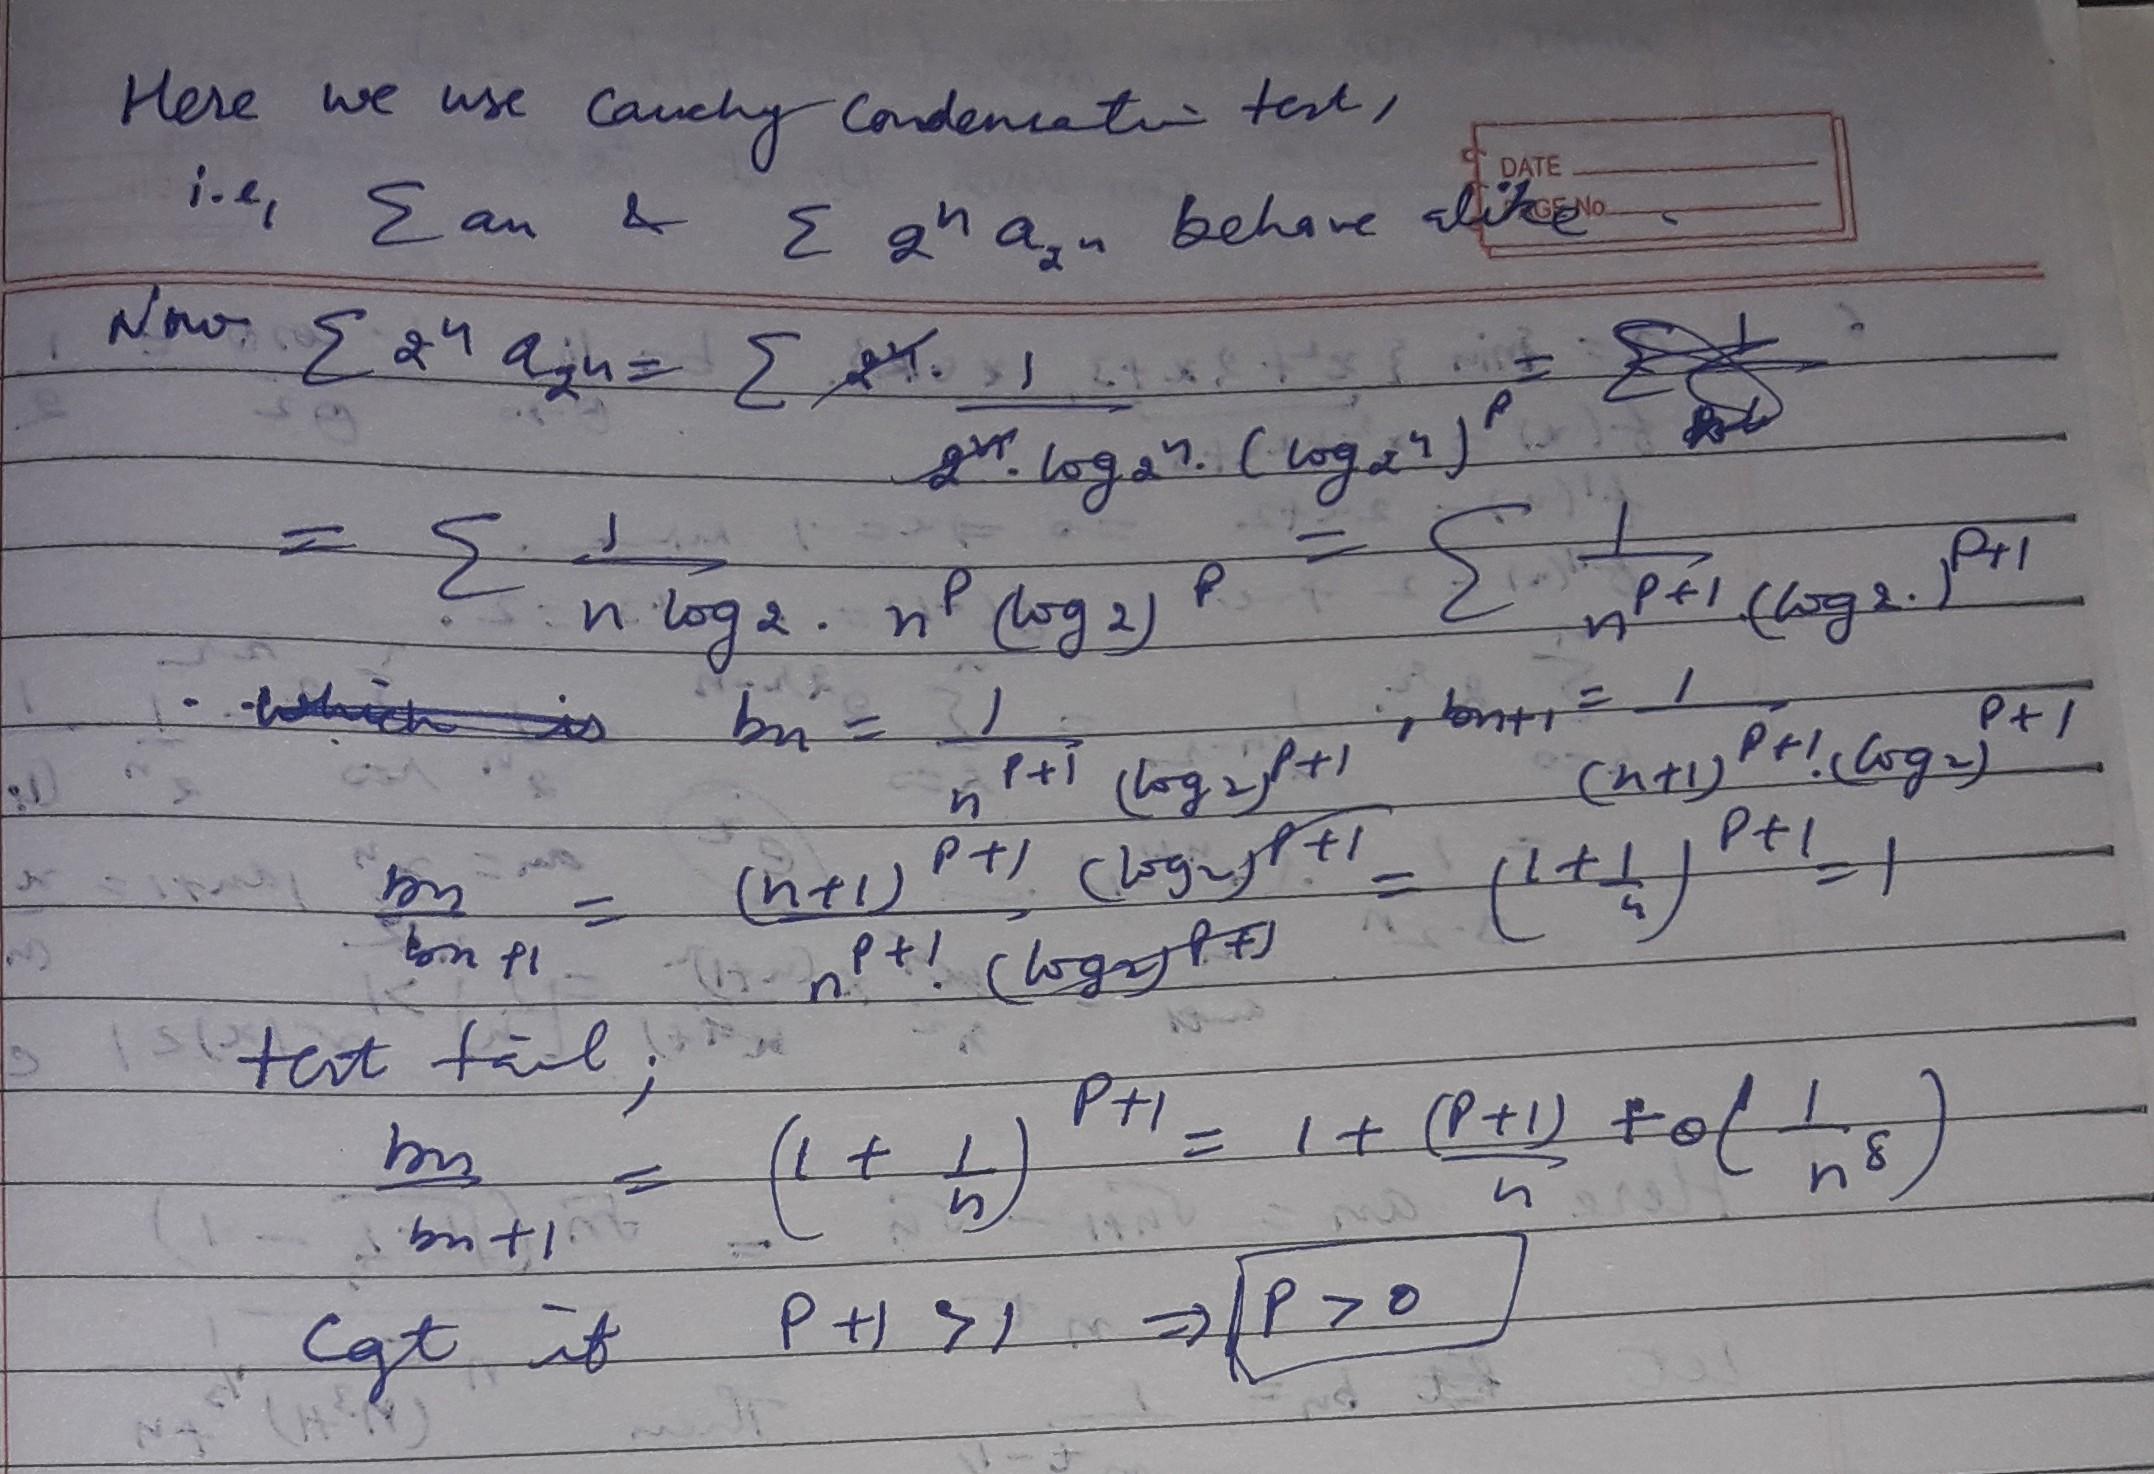 Here we use Cauchy Condensation test,
DATE
i.e, Σ an & Σ 2ⁿ a₂ⁿ behave alike.
Now Σ 2ⁿ a₂ⁿ = Σ 2ⁿ. 1/(2ⁿ. log 2ⁿ. (log 2ⁿ)^P) =
= Σ 1/(n log 2 . n^P (log 2)^P) = Σ 1/(n^(P+1) (log 2.)^(P+1))
which is bn = 1/(n^(P+1) (log 2)^(P+1)) , bn+1 = 1/((n+1)^(P+1) . (log 2)^(P+1))
bn/bn+1 = ((n+1)^(P+1) (log 2)^(P+1))/(n^(P+1) . (log 2)^(P+1)) = (1 + 1/n)^(P+1) = 1
test fail ;
bn/bn+1 = (1 + 1/n)^(P+1) = 1 + (P+1)/n + o(1/n^8)
Cgt if P+1 > 1 ⇒ P > 0